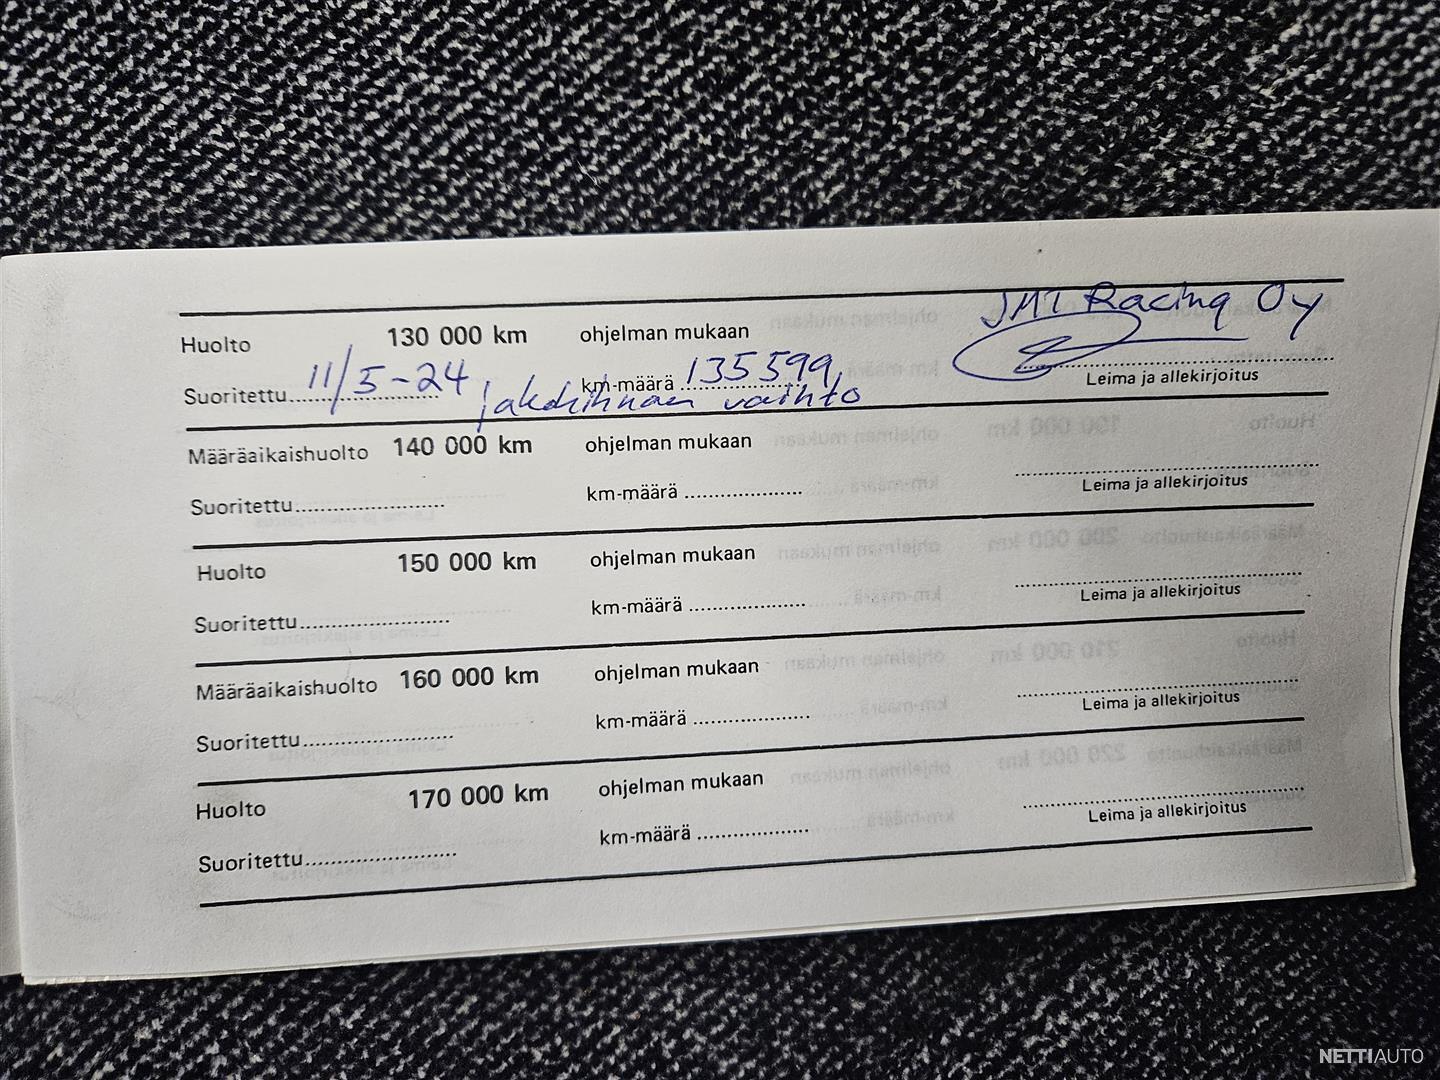 JMT Racing Oy
Huolto 130 000 km ohjelman mukaan
Suoritettu 11/5-24 km-määrä 135599 Leima ja allekirjoitus
jakohihnan vaihto
Määräaikaishuolto 140 000 km ohjelman mukaan
Suoritettu km-määrä Leima ja allekirjoitus
Huolto 150 000 km ohjelman mukaan
Suoritettu km-määrä Leima ja allekirjoitus
Määräaikaishuolto 160 000 km ohjelman mukaan
Suoritettu km-määrä Leima ja allekirjoitus
Huolto 170 000 km ohjelman mukaan
Suoritettu km-määrä Leima ja allekirjoitus
NETTIAUTO